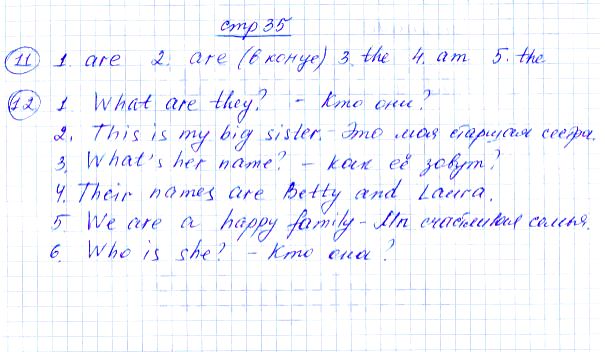 стр 35
11 1. are 2. are (в конце) 3. the 4. am 5. the
12 1. What are they? - Кто они?
2. This is my big sister. - Это моя старшая сестра.
3. What's her name? - Как её зовут?
4. Their names are Betty and Laura.
5. We are a happy family - Мы счастливая семья.
6. Who is she? - Кто она?